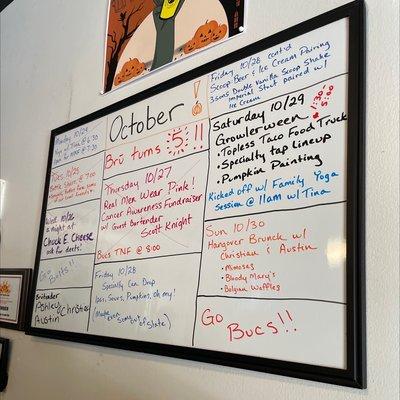 October!
Brü turns 5!!
Monday 10/24
Yoga w/ Tina @ 6:30
@ 7:00
Wed. 10/26
a night at
Chuck E. Cheese
Go Bolts!!
Britender
Ashley
Christian
Austin
Thursday 10/27
Real Men Wear Pink!
Cancer Awareness Fundraiser
w/ Guest Bartender
Scott Knight
Bucs TNF @ 8:00
Friday 10/28
Specialty Can Drop
Ipas, Sours, Pumpkin, oh my!
(Maybe even some out of state)
Friday 10/28 cont'd
Scoop Beer & Ice Cream Pairing
Vanilla Scoop Shake
Imperial Stout paired w/
Ice Cream
Saturday 10/29
Growlerween
• Topless Taco Food Truck
• Specialty tap lineup
• Pumpkin Painting
Kicked off w/ Family Yoga
Session @ 11am w/ Tina
Sun 10/30
Hangover Brunch w/
Christian & Austin
• Mimosas
• Bloody Mary's
• Belgian Waffles
Go
Bucs!!